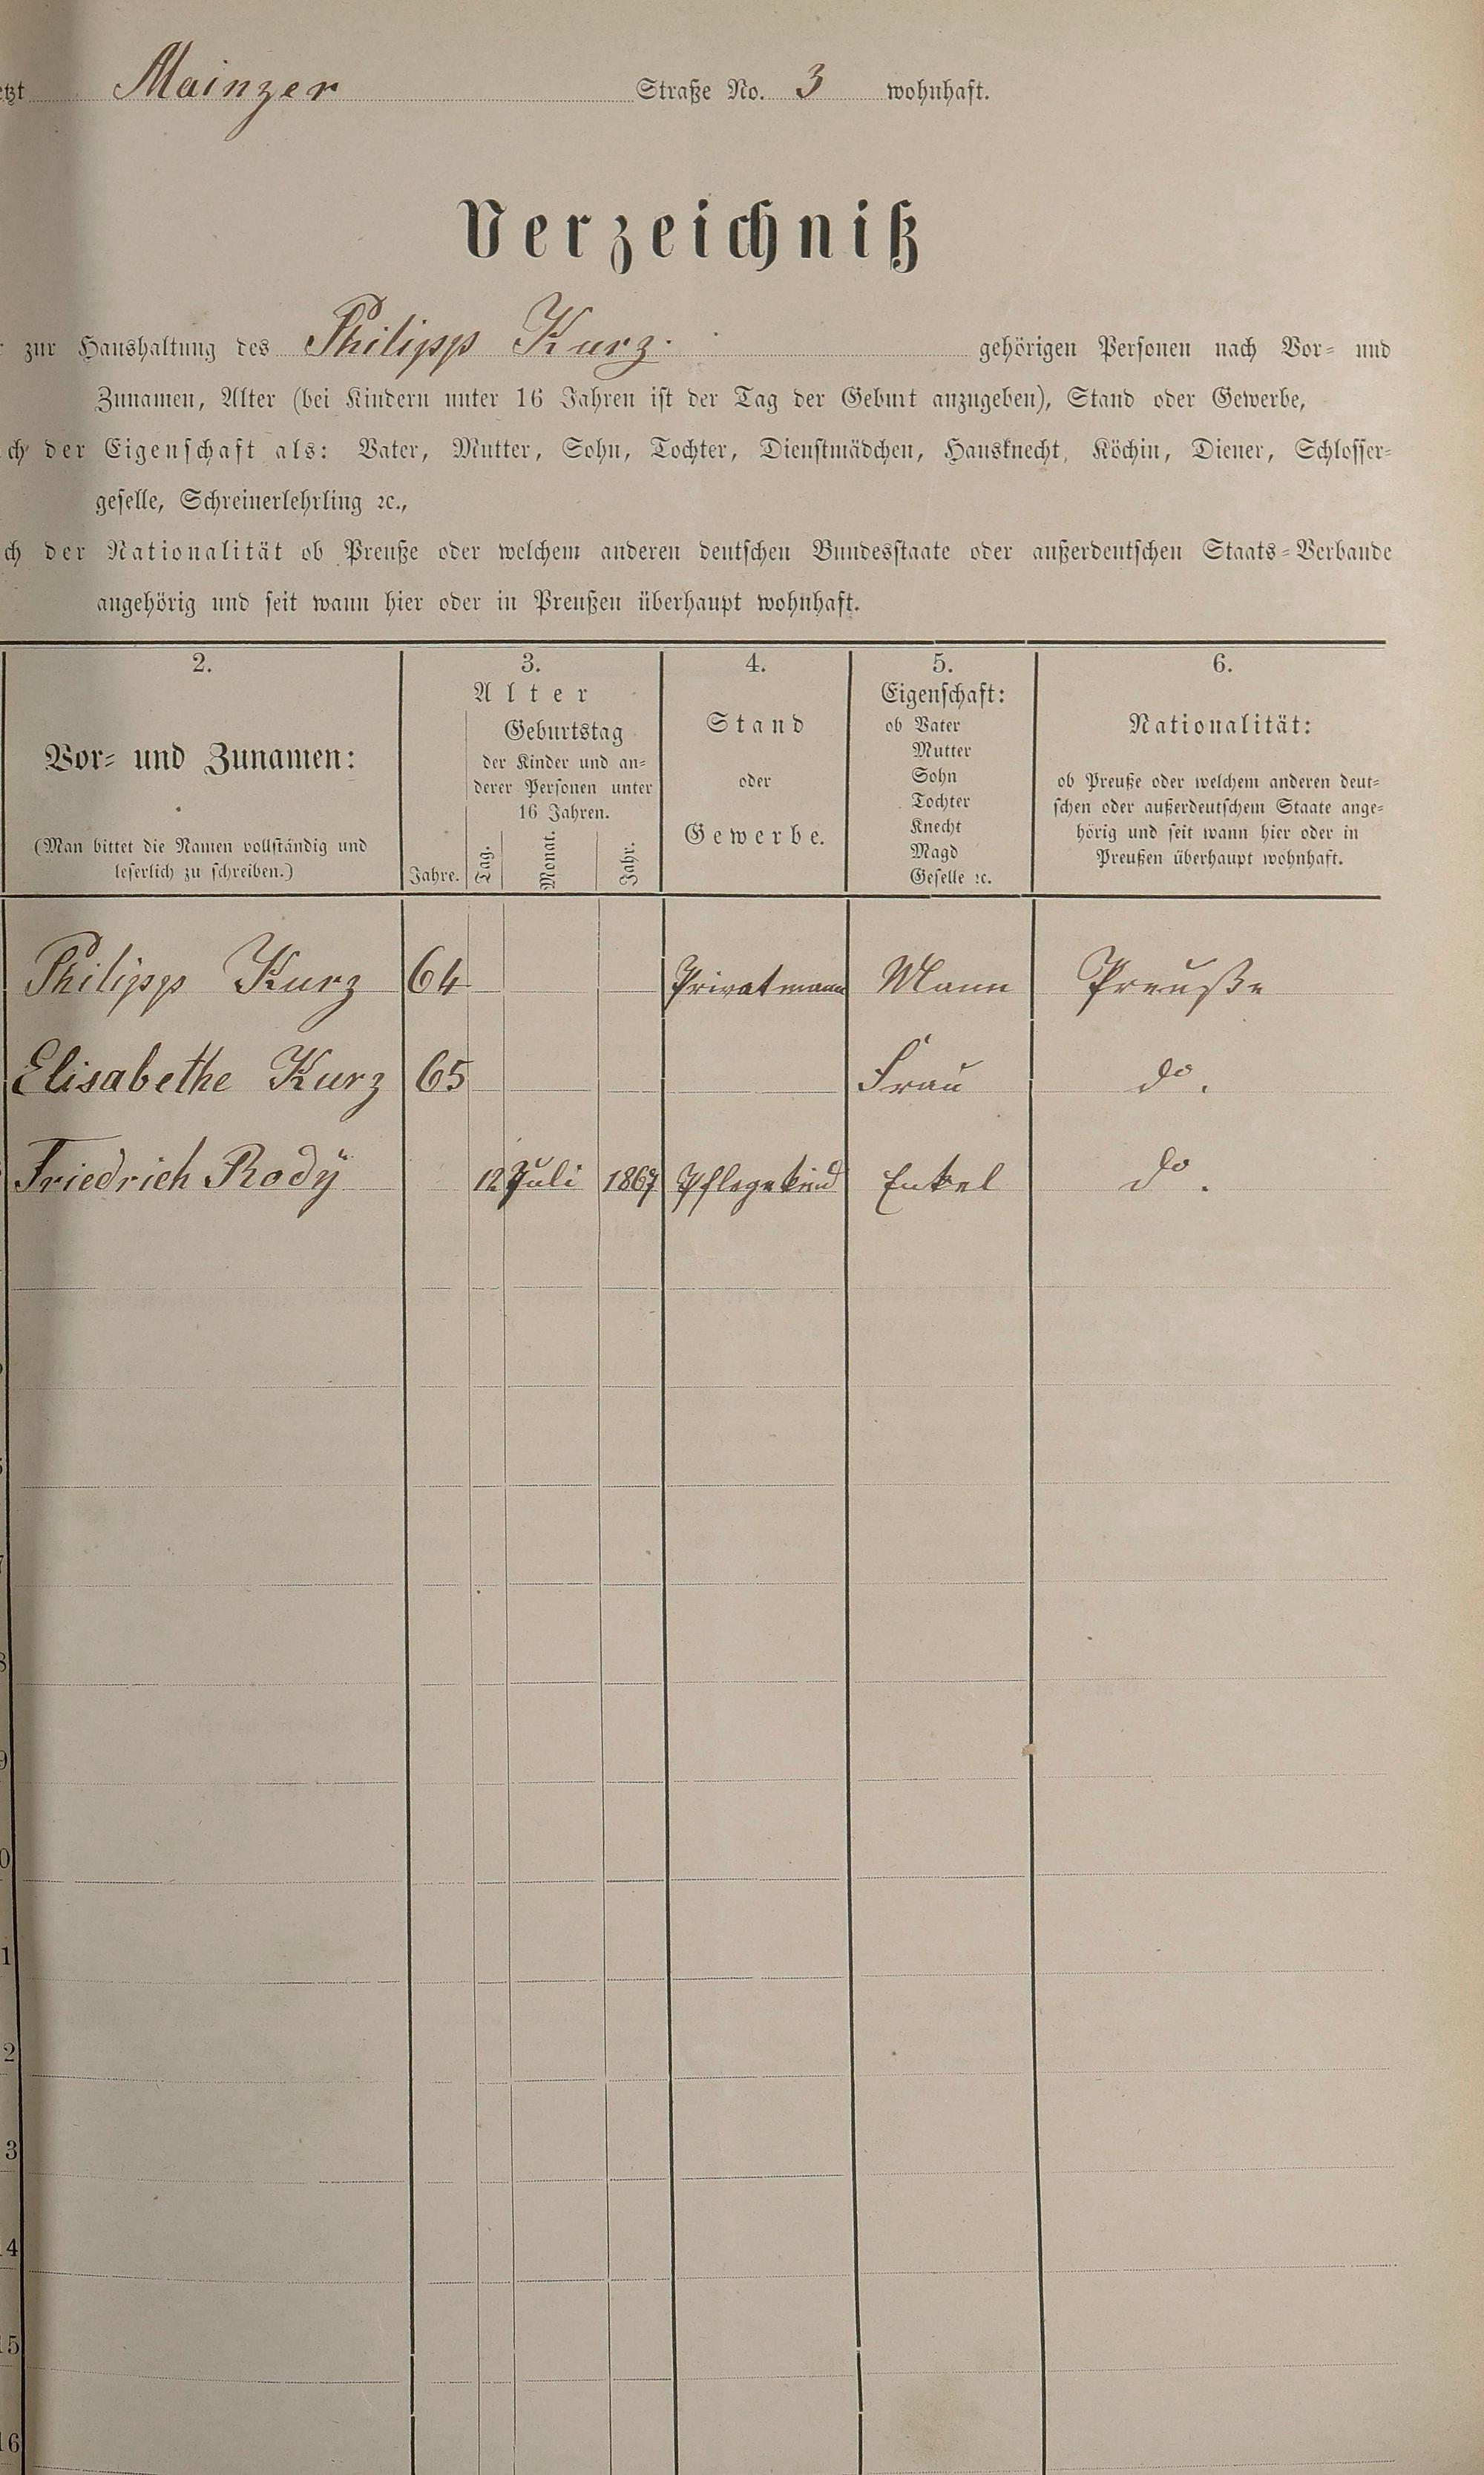 etzt Mainzer Straße No. 3 wohnhaft.
Verzeichniß
zur Haushaltung des Philipp Kurz. gehörigen Personen nach Vor- und
Zunamen, Alter (bei Kindern unter 16 Jahren ist der Tag der Geburt anzugeben), Stand oder Gewerbe,
ch der Eigenschaft als: Vater, Mutter, Sohn, Tochter, Dienstmädchen, Hausknecht, Köchin, Diener, Schlosser-
geselle, Schreinerlehrling ꝛc.,
ch der Nationalität ob Preuße oder welchem anderen deutschen Bundesstaate oder außerdeutschen Staats-Verbande
angehörig und seit wann hier oder in Preußen überhaupt wohnhaft.
2.
Vor- und Zunamen:
(Man bittet die Namen vollständig und
leserlich zu schreiben.)
3.
Alter
Jahre.
Geburtstag
der Kinder und an-
derer Personen unter
16 Jahren.
Tag.
Monat.
Jahr.
4.
Stand
oder
Gewerbe.
5.
Eigenschaft:
ob Vater
Mutter
Sohn
Tochter
Knecht
Magd
Geselle ꝛc.
6.
Nationalität:
ob Preuße oder welchem anderen deut-
schen oder außerdeutschem Staate ange-
hörig und seit wann hier oder in
Preußen überhaupt wohnhaft.
Philipp Kurz 64 Privatmann Mann Preuße
Elisabethe Kurz 65 Frau do.
Friedrich Rody 12 Juli 1867 Pflegekind Enkel do.
7
8
9
0
1
2
3
4
15
16